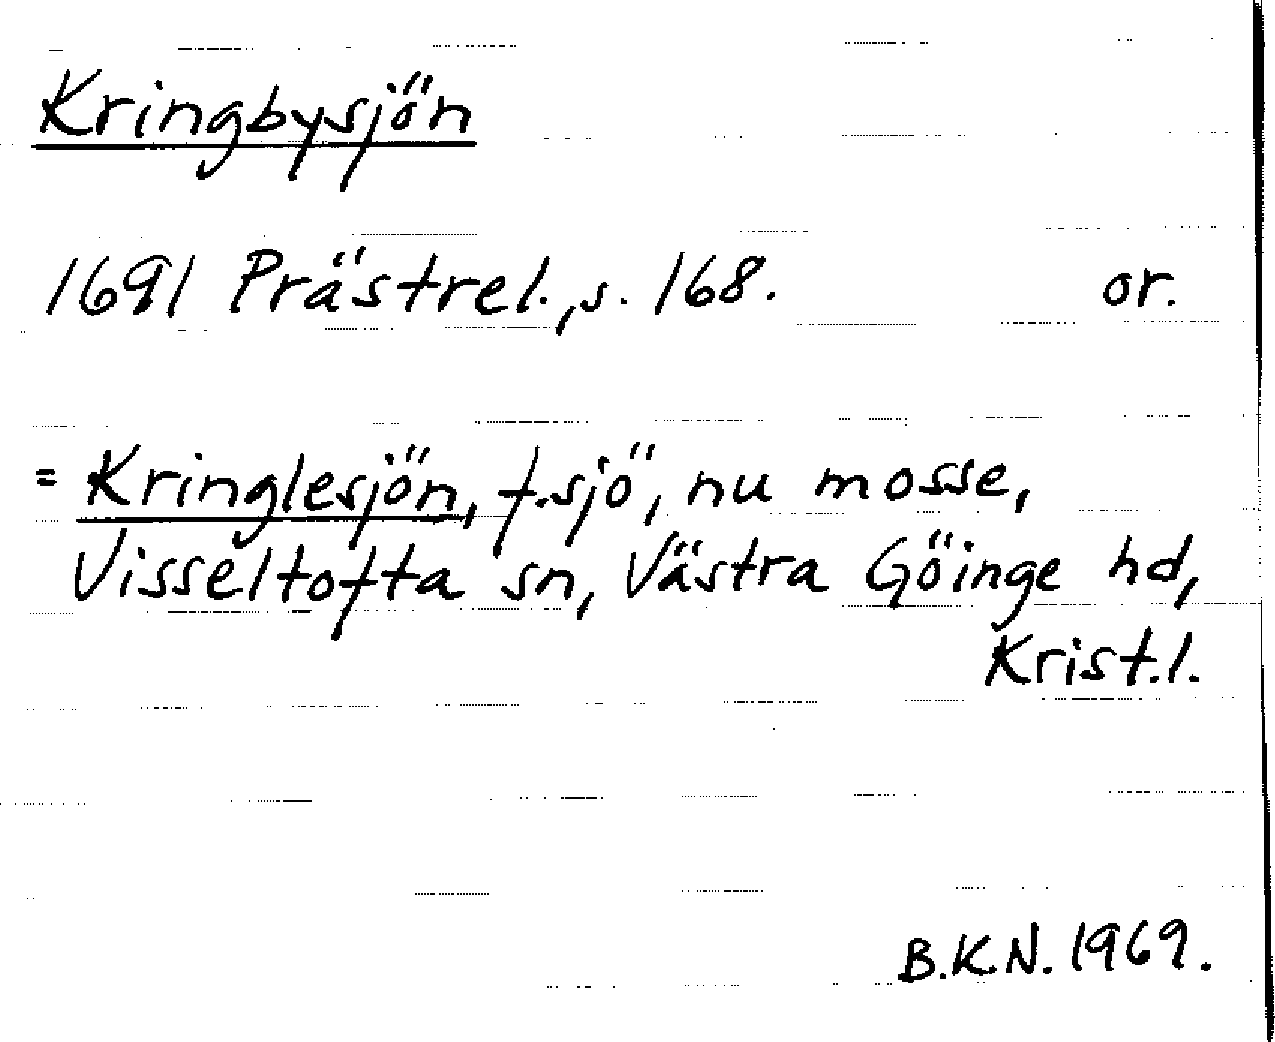 Kringbysjön
1691 Prästrel., s. 168. or.
= Kringlesjön, f.sjö, nu mosse,
Visseltofta sn, Västra Göinge hd,
Krist.l.
B.K.N. 1969.